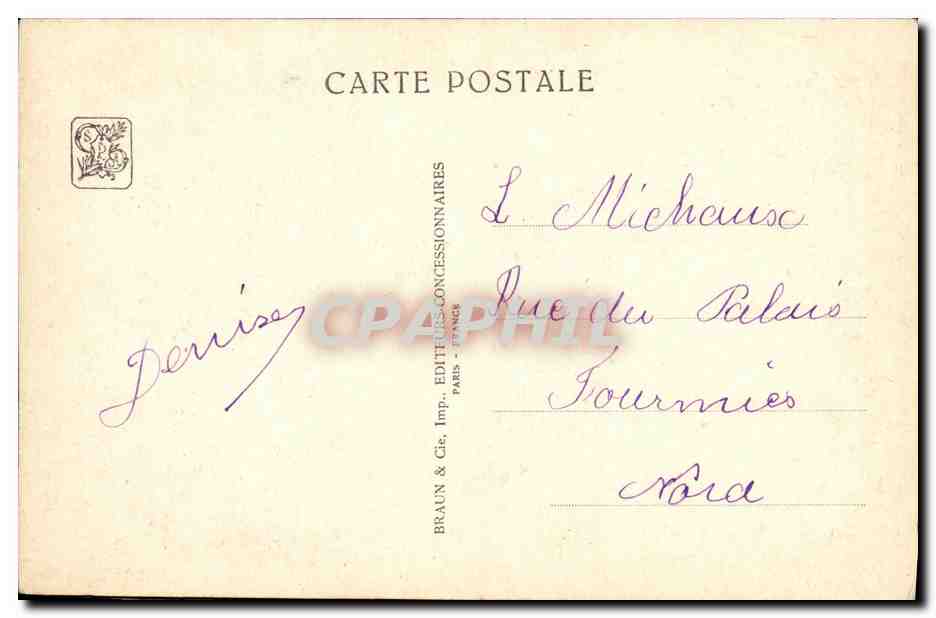 CARTE POSTALE
SPA
Denise
BRAUN & Cie, Imp., EDITEURS-CONCESSIONNAIRES
PARIS - FRANCE
CPAPHIL
L. Michaux
Rue du Palais
Fourmies
Nord